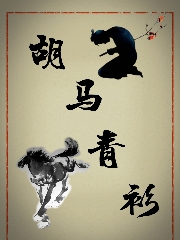 胡马青衫